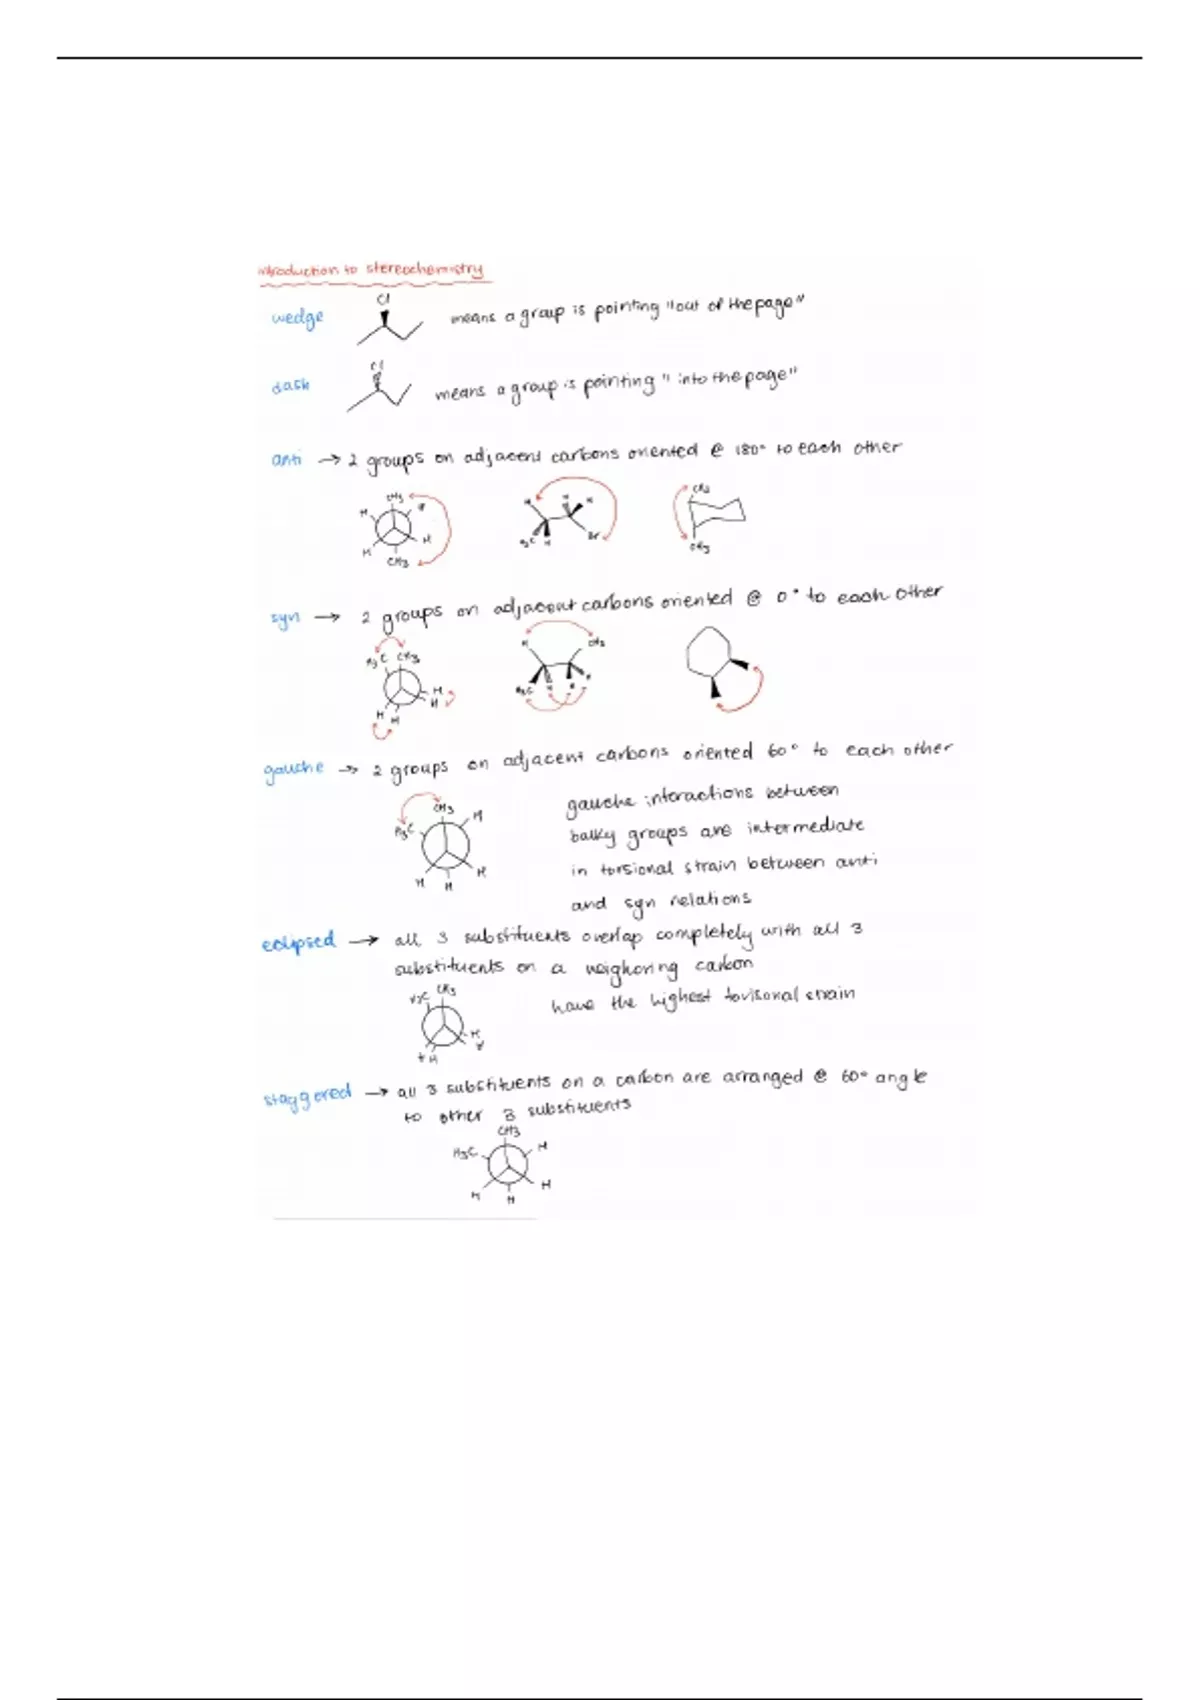 introduction to stereochemistry
Cl
wedge means a group is pointing "out of the page"
Cl
dash means a group is pointing "into the page"
anti → 2 groups on adjacent carbons oriented @ 180° to each other
CH3 H H H H CH3
H H H H3C H Br
CH3 CH3
syn → 2 groups on adjacent carbons oriented @ 0° to each other
H3C CH3 H H H H
H CH3 H3C H H H
gauche → 2 groups on adjacent carbons oriented 60° to each other
CH3 H H3C H H H
gauche interactions between
bulky groups are intermediate
in torsional strain between anti
and syn relations
eclipsed → all 3 substituents overlap completely with all 3
substituents on a neighoring carbon
H3C CH3 H H H H
have the highest torisonal strain
staggered → all 3 substituents on a carbon are arranged @ 60° angle
to other 3 substituents
CH3
H3C H
H H H